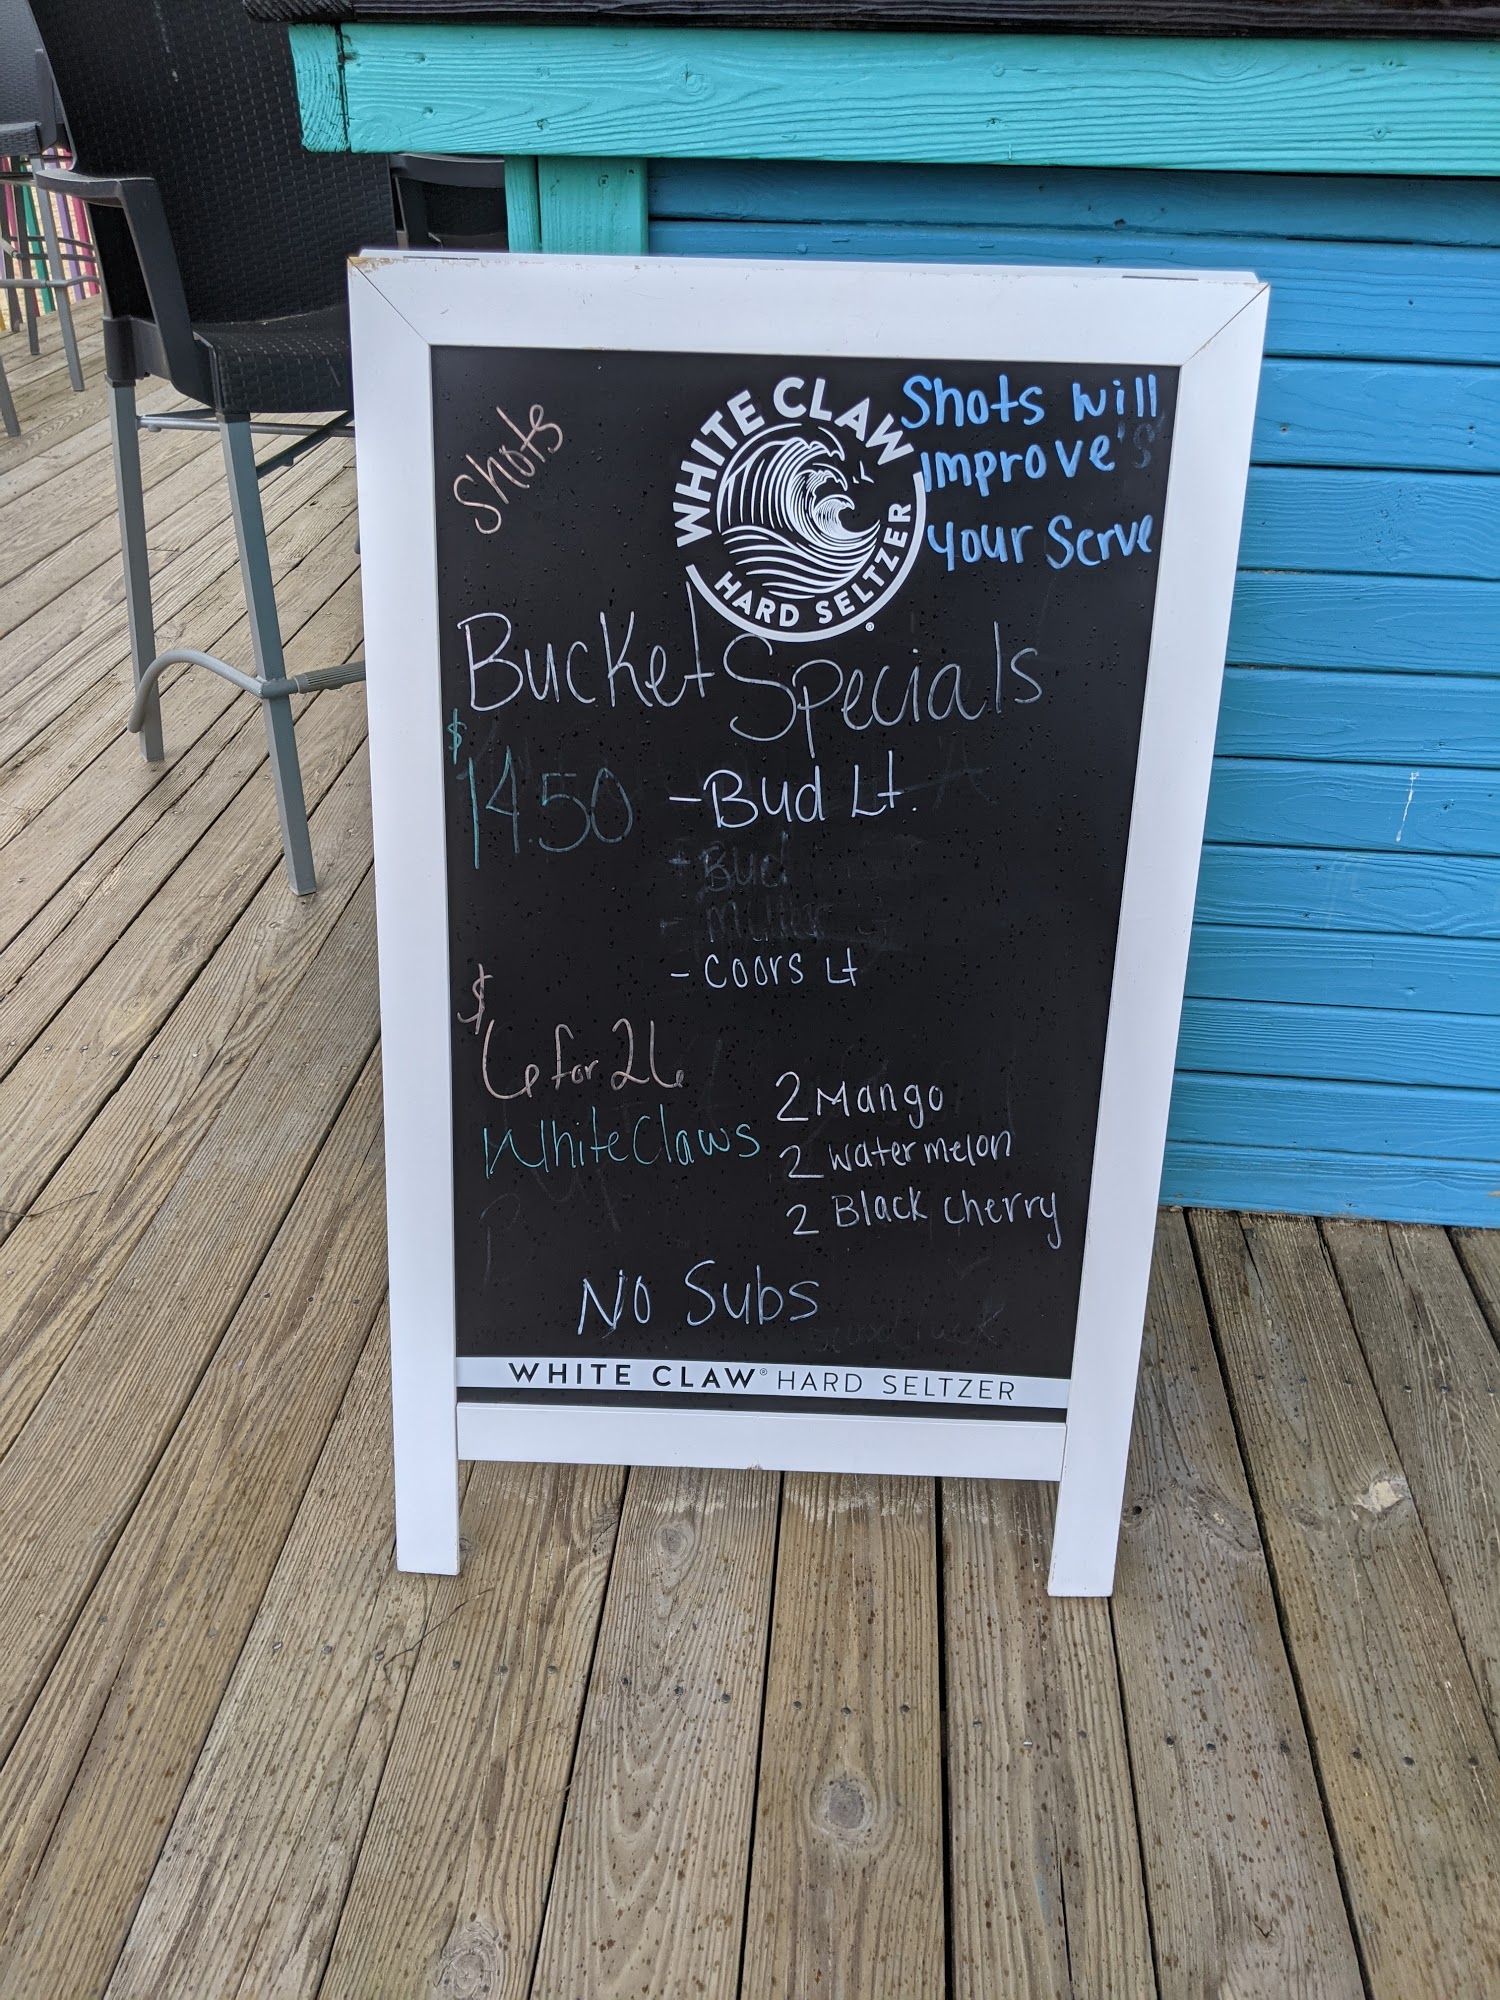 Shots
WHITE CLAW
HARD SELTZER
®
Shots will
improve's
your Serve
Bucket Specials
$
14.50 - Bud Lt.
- Bud
- Miller
- Coors Lt
$
6 for 26
White Claws
2 Mango
2 watermelon
2 Black Cherry
No Subs
WHITE CLAW® HARD SELTZER